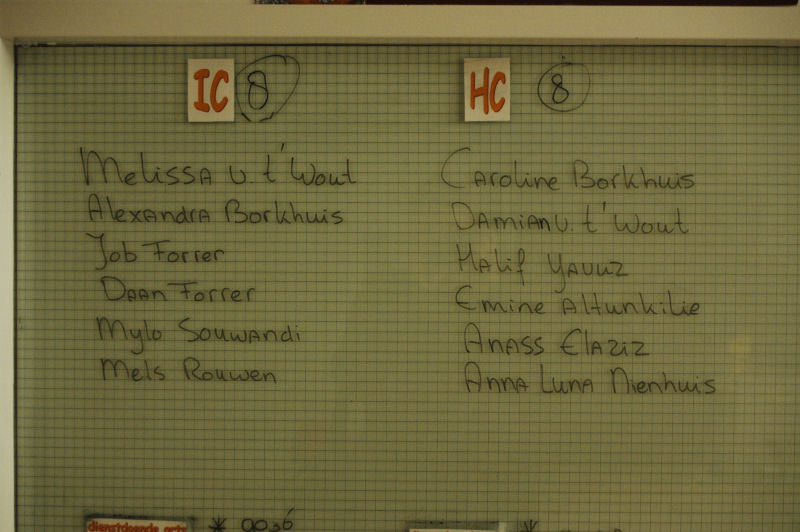 IC 8
Melissa v. t' Wout
Alexandra Borkhuis
Job Forrer
Daan Forrer
Mylo Souwandi
Mels Rouwen
HC 8
Caroline Borkhuis
Damian v. t' Wout
Halif Yavuz
Emine Altunkilie
Anass Elaziz
Anna Luna Nienhuis
dienstdoende arts